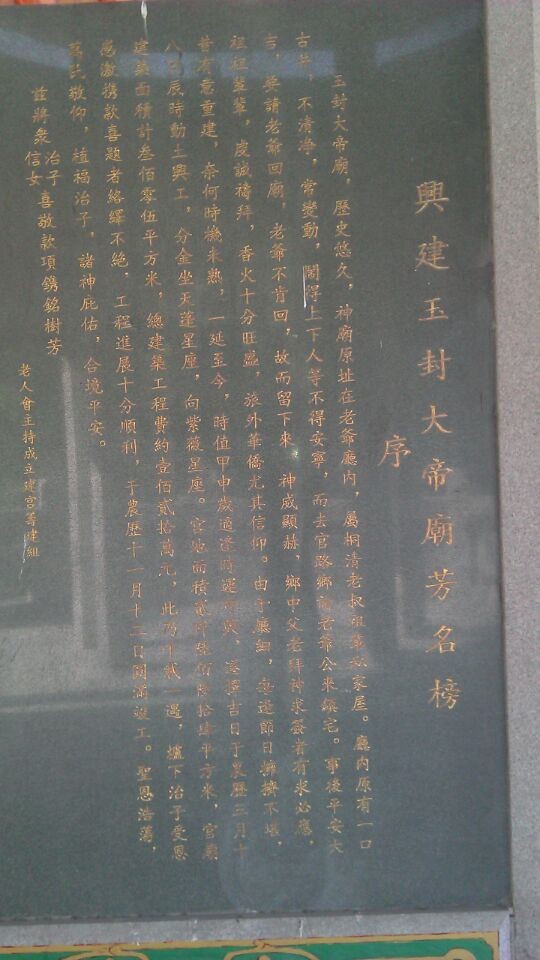 興建玉封大帝廟芳名榜
序
玉封大帝廟，歷史悠久，神廟原址在老爺廳內，屬桐清老叔祖輩私家屋。廳內原有一口
古井，不清淨，常變動，鬧得上下人等不得安寧，而去官路鄉請老爺公來鎮宅。事後平安大
吉，要請老爺回廟，老爺不肯回，故而留下來。神威顯赫，鄉中父老拜神求簽者有求必應，
祖祖輩輩，虔誠禱拜，香火十分旺盛，旅外華僑尤其信仰。由于廳細，每逢節日擁擠不堪，
昔有意重建，奈何時機未熟，一延至今，時值甲申歲適逢時運
擇吉日于農歷三月十
八日辰時動土興工，分金坐天蓬星座，向紫薇星座。宮地面積
平方米，宮廟
建築面積計叁佰零伍平方米，總建築工程費約壹佰貳拾萬元，此乃千載一遇，爐下治子受恩
感激捐款喜題者絡繹不絕，工程進展十分順利，于農歷十一月十二日圓滿竣工。聖恩浩蕩，
萬民敬仰，植福治子，諸神庇佑，合境平安。
茲將衆治子信女喜敬款項鐫銘樹芳
老人會主持成立建宮籌建組